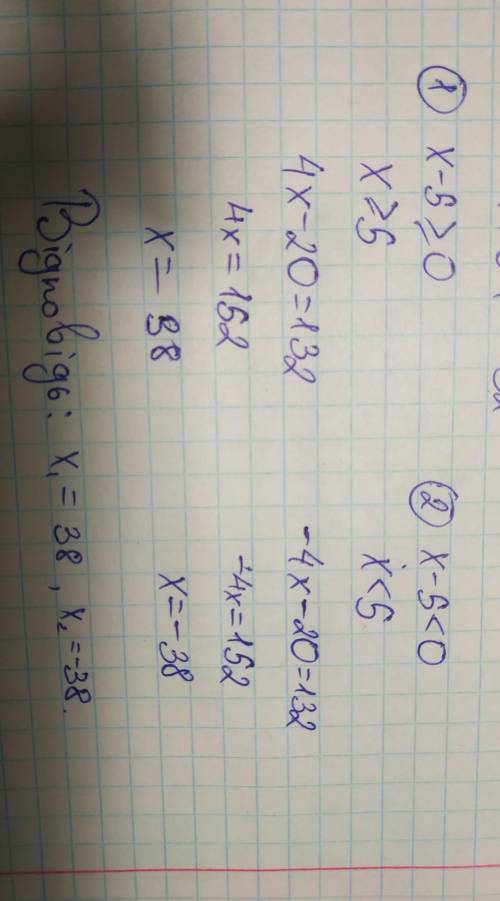 ① x-5≥0
x≥5
4x-20=132
4x=152
x=38
② x-5<0
x<5
-4x-20=132
-4x=152
x=-38
Відповідь: x₁=38, x₂=-38.